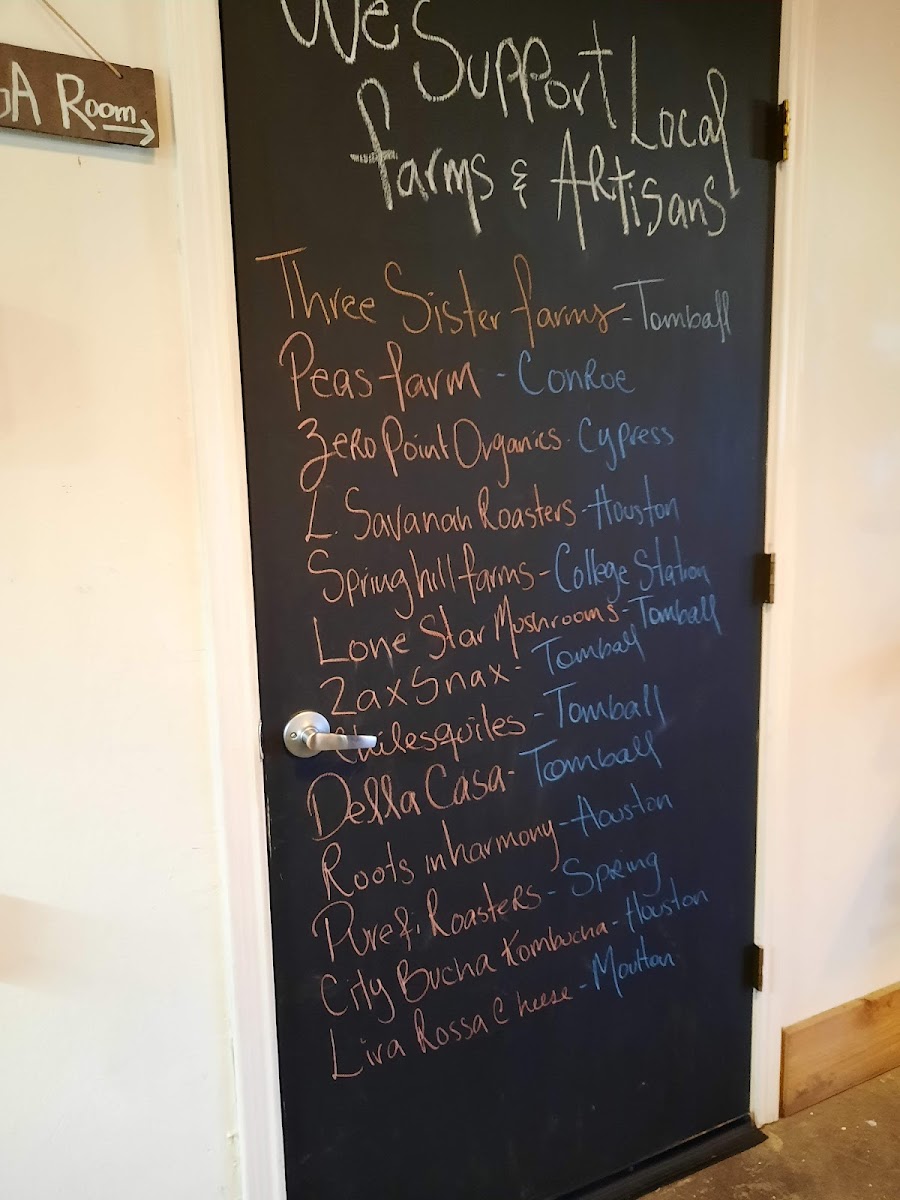 GA Room
We Support Local
farms & Artisans
Three Sister farms - Tomball
Peas farm - Conroe
Zero Point Organics - Cypress
L. Savanah Roasters - Houston
Springhill farms - College Station
Lone Star Mushrooms - Tomball
Zax Snax - Tomball
Chilesquiles - Tomball
Della Casa - Tomball
Roots in harmony - Houston
Purefi Roasters - Spring
City Bucha Kombucha - Houston
Lira Rossa Cheese - Moulton